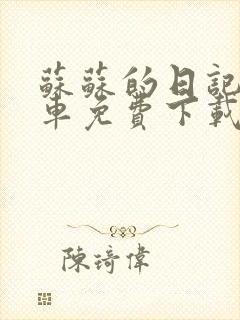 蘇蘇的日記
車免費下載
陳琦偉